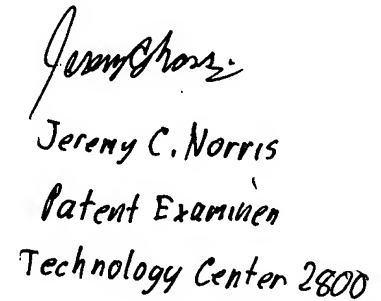 Jeremy C. Norris
Patent Examiner
Technology Center 2800